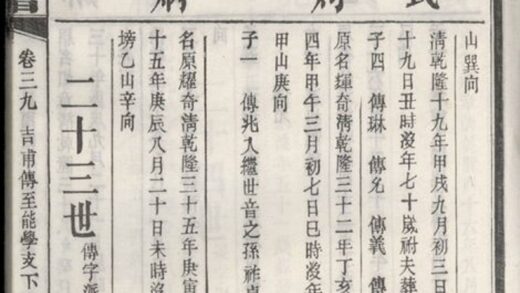 山巽向
清乾隆十九年甲戌九月初三日
十九日丑時沒年七十歲祔夫葬
子四 傳琳 傳名 傳義 傳
原名輝奇清乾隆三十二年丁亥
四年甲午三月初七日巳時沒年
甲山庚向
子一 傳兆入繼世音之孫祚
名原燿奇清乾隆三十五年庚寅
十五年庚辰八月二十日未時沒
塝乙山辛向
二十三世 傳字派
卷三九 吉甫傳至能學支下